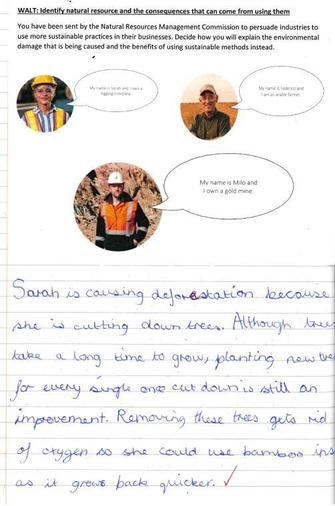 WALT: Identify natural resource and the consequences that can come from using them
You have been sent by the Natural Resources Management Commission to persuade industries to
use more sustainable practices in their businesses. Decide how you will explain the environmental
damage that is being caused and the benefits of using sustainable methods instead.
My name is Sarah and I own a
logging company.
My name is Federico and
I am an arable farmer.
My name is Milo and
I own a gold mine.
Sarah is causing deforestation because
she is cutting down trees. Although trees
take a long time to grow, planting new
for every single one cut down is still an
improvement. Removing these trees gets rid
of oxygen so she could use bamboo
as it grows back quicker.